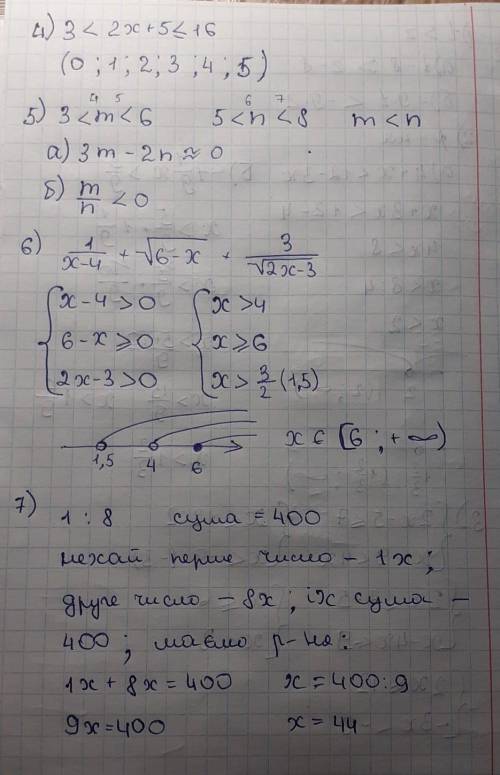 4) 3 < 2x+5 ≤ 16
(0 ; 1 ; 2 ; 3 ; 4 ; 5)
4 5 6 7
5) 3 < m < 6 5 < n < 8 m < n
а) 3m - 2n ≈ 0
б) m/n < 0
6) 1/(x-4) + √(6-x) + 3/√(2x-3)
{ x-4 > 0 { x > 4
6-x ≥ 0 x ≥ 6
2x-3 > 0 x > 3/2 (1,5)
1,5 4 6 x ∈ [6 ; +∞)
7) 1 : 8 сума = 400
нехай перше число – 1x ;
друге число – 8x ; їх сума –
400 ; маємо р-ня:
1x + 8x = 400 x = 400:9
9x = 400 x = 44